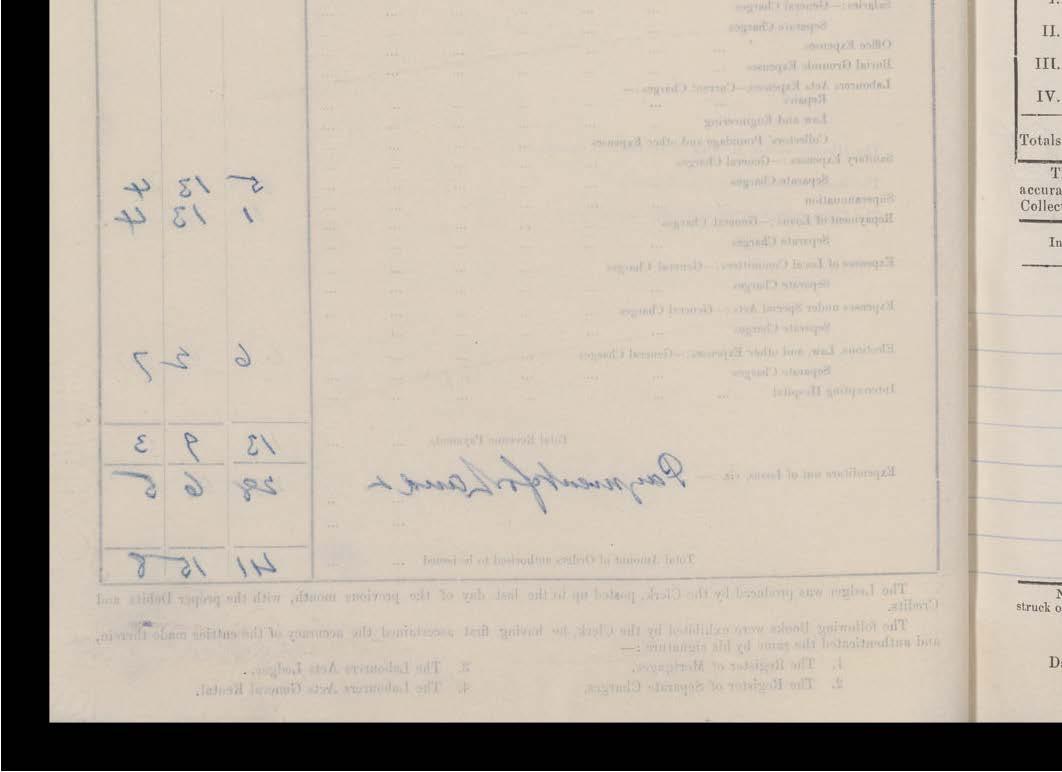 Salaries:—General Charges
Separate Charges
Office Expenses
Burial Grounds Expenses
Labourers Acts Expenses,—Current Charges:—
Repairs
Law and Engineering
Collectors' Poundage and other Expenses
Sanitary Expenses:—General Charges
Separate Charges 5 13 4
Superannuation
Repayment of Loans:—General Charges 1 13 4
Separate Charges
Expenses of Local Committees:—General Charges
Separate Charges
Expenses under Special Acts:—General Charges
Separate Charges
Elections, Law, and other Expenses:—General Charges 6 2 7
Separate Charges
Intercepting Hospital
Total Revenue Payments, 13 9 3
Expenditure out of Loans, viz.— Payment for Land & 28 6 5
Total Amount of Orders authorised to be issued 41 15 8
The Ledger was produced by the Clerk, posted up to the last day of the previous month, with the proper Debits and
Credits.
The following Books were exhibited by the Clerk, he having first ascertained the accuracy of the entries made therein,
and authenticated the same by his signature:—
1. The Register of Mortgages. 3. The Labourers Acts Ledger.
2. The Register of Separate Charges. 4. The Labourers Acts General Rental.
I.
II.
III.
IV.
Totals
T
accura
Collec
In
N
struck o
Da